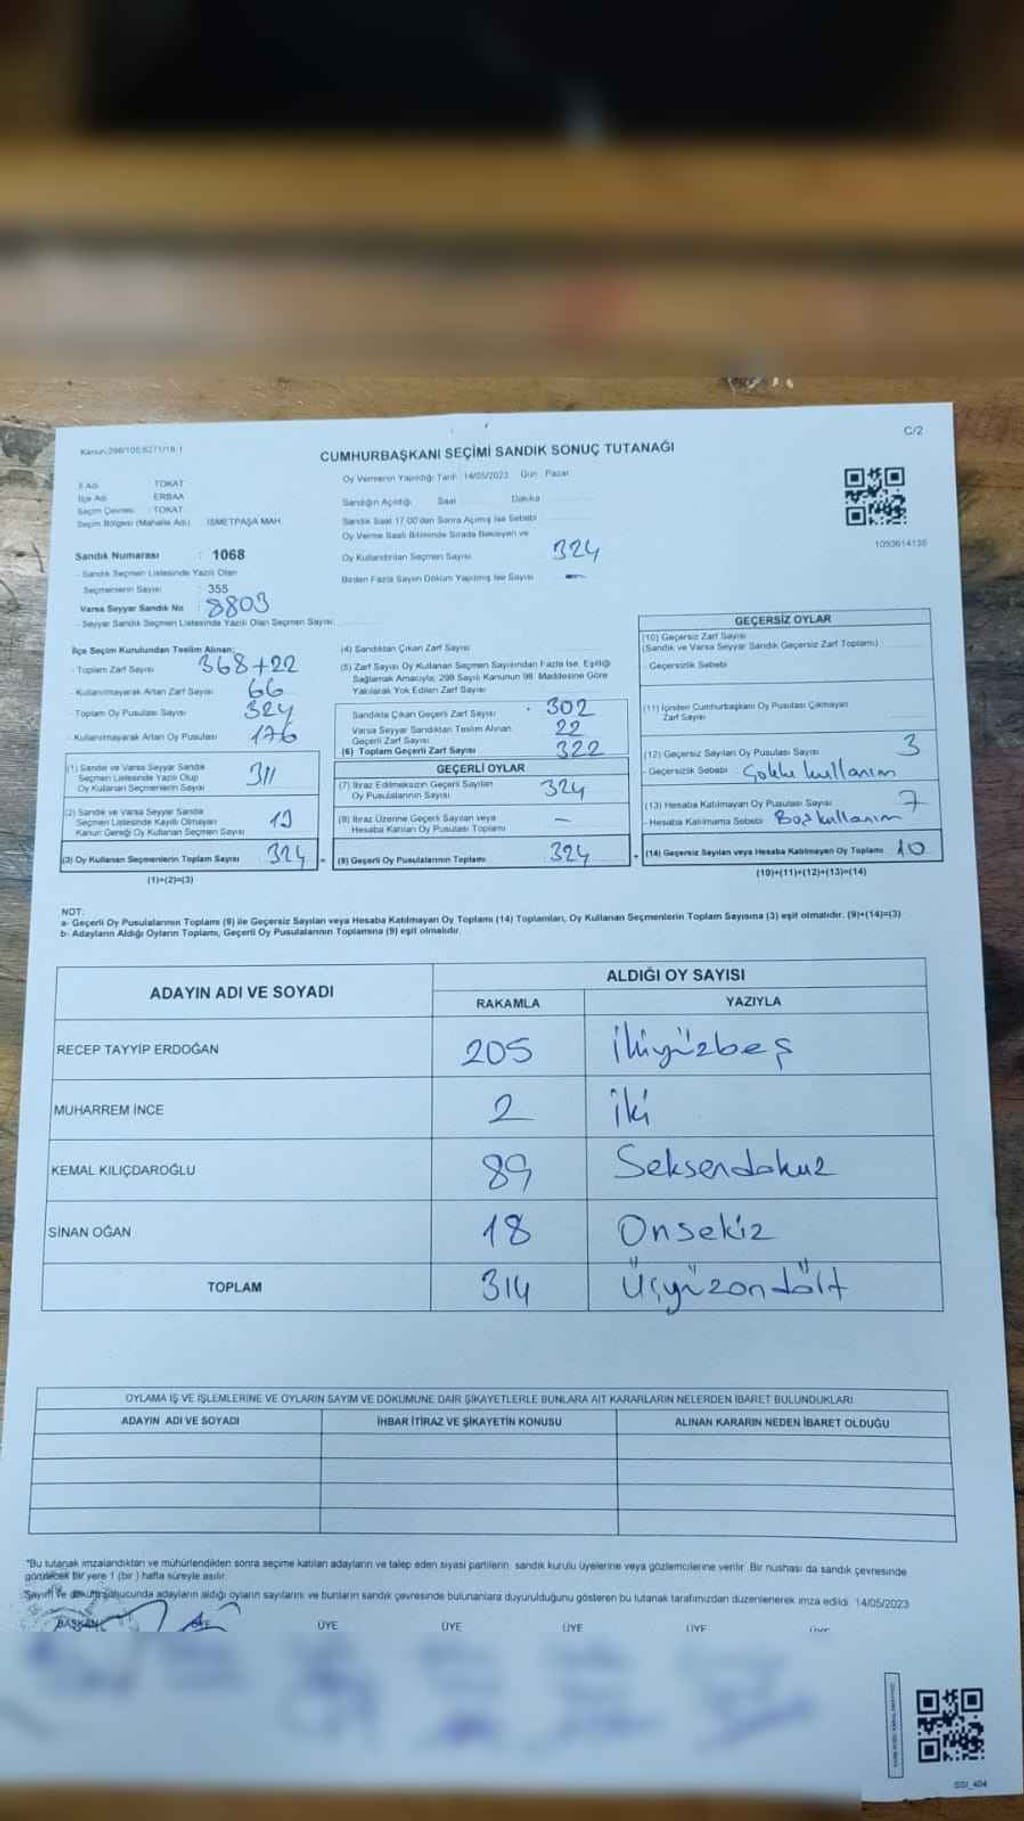 Kanun:298/105;6271/19-1
C/2
CUMHURBAŞKANI SEÇİMİ SANDIK SONUÇ TUTANAĞI
İl Adı : TOKAT
İlçe Adı : ERBAA
Seçim Çevresi : TOKAT
Seçim Bölgesi (Mahalle Adı) : İSMETPAŞA MAH.
Sandık Numarası : 1068
- Sandık Seçmen Listesinde Yazılı Olan
Seçmenlerin Sayısı : 355
Varsa Seyyar Sandık No : 8803
- Seyyar Sandık Seçmen Listesinde Yazılı Olan Seçmen Sayısı
Oy Vermenin Yapıldığı Tarih 14/05/2023 Gün : Pazar
Sandığın Açıldığı Saat Dakika
Sandık Saat 17.00'den Sonra Açılmış İse Sebebi
Oy Verme Saati Bitiminde Sırada Bekleyen ve
Oy Kullandırılan Seçmen Sayısı 324
Birden Fazla Sayım Döküm Yapılmış İse Sayısı -
1093614135
İlçe Seçim Kurulundan Teslim Alınan;
- Toplam Zarf Sayısı 368+22
- Kullanılmayarak Artan Zarf Sayısı 66
- Toplam Oy Pusulası Sayısı 324
- Kullanılmayarak Artan Oy Pusulası 176
(1) Sandık ve Varsa Seyyar Sandık
Seçmen Listesinde Yazılı Olup
Oy Kullanan Seçmenlerin Sayısı 311
(2) Sandık ve Varsa Seyyar Sandık
Seçmen Listesinde Kayıtlı Olmayan
Kanun Gereği Oy Kullanan Seçmen Sayısı 13
(3) Oy Kullanan Seçmenlerin Toplam Sayısı 324 =
(1)+(2)=(3)
(4) Sandıktan Çıkan Zarf Sayısı
(5) Zarf Sayısı Oy Kullanan Seçmen Sayısından Fazla İse, Eşitliği
Sağlamak Amacıyla; 298 Sayılı Kanunun 98. Maddesine Göre
Yakılarak Yok Edilen Zarf Sayısı
Sandıkta Çıkan Geçerli Zarf Sayısı 302
Varsa Seyyar Sandıktan Teslim Alınan
Geçerli Zarf Sayısı 22
(6) Toplam Geçerli Zarf Sayısı 322
GEÇERLİ OYLAR
(7) İtiraz Edilmeksizin Geçerli Sayılan
Oy Pusulalarının Sayısı 324
(8) İtiraz Üzerine Geçerli Sayılan veya
Hesaba Katılan Oy Pusulası Toplamı -
(9) Geçerli Oy Pusulalarının Toplamı 324 +
GEÇERSİZ OYLAR
(10) Geçersiz Zarf Sayısı
(Sandık ve Varsa Seyyar Sandık Geçersiz Zarf Toplamı)
- Geçersizlik Sebebi
(11) İçinden Cumhurbaşkanı Oy Pusulası Çıkmayan
Zarf Sayısı
(12) Geçersiz Sayılan Oy Pusulası Sayısı 3
- Geçersizlik Sebebi Çoklu kullanım
(13) Hesaba Katılmayan Oy Pusulası Sayısı 7
- Hesaba Katılmama Sebebi Boş kullanım
(14) Geçersiz Sayılan veya Hesaba Katılmayan Oy Toplamı 10
(10)+(11)+(12)+(13)=(14)
NOT:
a- Geçerli Oy Pusulalarının Toplamı (9) ile Geçersiz Sayılan veya Hesaba Katılmayan Oy Toplamı (14) Toplamları, Oy Kullanan Seçmenlerin Toplam Sayısına (3) eşit olmalıdır. (9)+(14)=(3)
b- Adayların Aldığı Oyların Toplamı, Geçerli Oy Pusulalarının Toplamına (9) eşit olmalıdır.
ADAYIN ADI VE SOYADI
ALDIĞI OY SAYISI
RAKAMLA YAZIYLA
RECEP TAYYİP ERDOĞAN 205 İkiyüzbeş
MUHARREM İNCE 2 İki
KEMAL KILIÇDAROĞLU 89 Seksendokuz
SİNAN OĞAN 18 Onsekiz
TOPLAM 314 Üçyüzondört
OYLAMA İŞ VE İŞLEMLERİNE VE OYLARIN SAYIM VE DÖKÜMÜNE DAİR ŞİKAYETLERLE BUNLARA AİT KARARLARIN NELERDEN İBARET BULUNDUKLARI
ADAYIN ADI VE SOYADI İHBAR İTİRAZ VE ŞİKAYETİN KONUSU ALINAN KARARIN NEDEN İBARET OLDUĞU
*Bu tutanak imzalandıktan ve mühürlendikten sonra seçime katılan adayların ve talep eden siyasi partilerin, sandık kurulu üyelerine veya gözlemcilerine verilir. Bir nüshası da sandık çevresinde
görülecek bir yere 1 (bir) hafta süreyle asılır.
Sayım ve döküm sonucunda adayların aldığı oyların sayılarını ve bunların sandık çevresinde bulunanlara duyurulduğunu gösteren bu tutanak tarafımızdan düzenlenerek imza edildi. 14/05/2023
BAŞKAN ÜYE ÜYE ÜYE ÜYE ÜYE
SSI_404